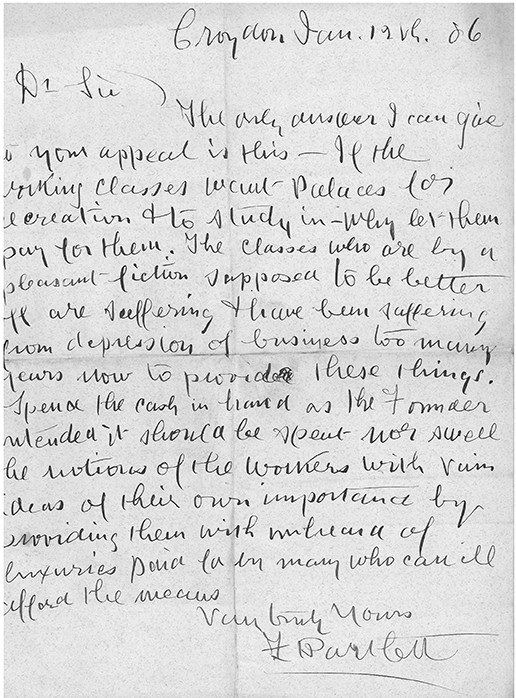 Croydon Jan. 12th. 86
Dr Sir
The only answer I can give
to your appeal is this — If the
working classes want Palaces for
recreation & to study in — why let them
pay for them. The classes who are by a
pleasant fiction supposed to be better
off are suffering & have been suffering
from depression of business too many
years now to provide these things.
Spend the cash in hand as the Founder
intended it should be spent nor swell
the notions of the workers with vain
ideas of their own importance by
providing them with unheard of
luxuries paid for by many who can ill
afford the means
Yours
F Bartlett